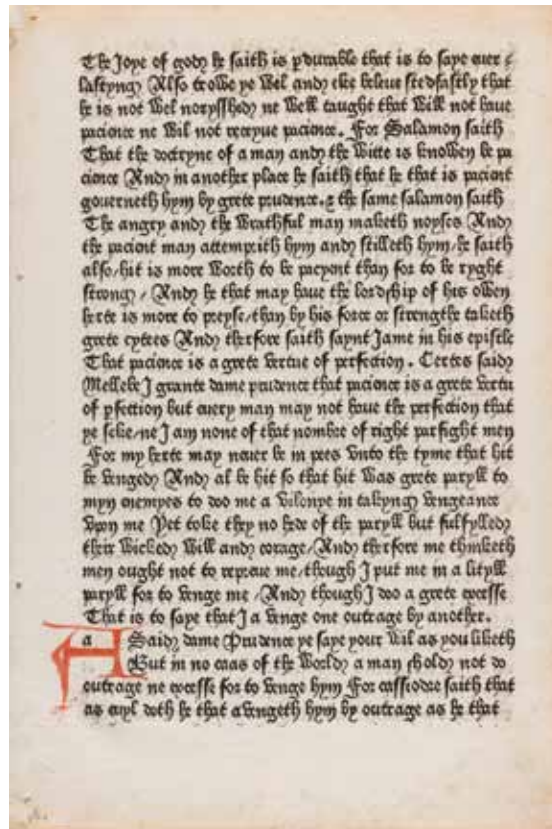 The Joye of god he saith is pdurable that is to saye euer
lastyng Also trowe ye wel and eke beleue stedfastly that
he is not wel norysshed ne well taught that will not haue
pacience ne wil not receyue pacience. For Salamon saith
That the doctryne of a man and the witte is knowen be pa
cience And in another place he saith that he that is pacient
gouerneth hym by grete prudence. & the same salamon saith
The angry and the wrathful man maketh noyses And
the pacient man attemprith hym and stilleth hym/he saith
also/hit is more worth to be pacyent than for to be ryght
strong / And he that may haue the lordship of his owen
herte is more to preyse/than by his force or strengthe taketh
grete cytees And therfore saith saynt Jame in his epistle
That pacience is a grete vertue of perfection. Certes said
Mellebe J grante dame prudence that pacience is a grete vertu
of pfection but euery man may not haue the perfection that
ye seke/ne J am none of that nombre of right parfight men
For my herte may neuer be in pees vnto the tyme that hit
be venged And al be hit so that hit was grete paryll to
myn enemyes to doo me a vilonye in takyng vengeance
vpon me Yet toke they no hede of the paryll but fulfylled
their wicked will and corage/And therfore me thinketh
men ought not to repreue me/though J put me in a lityll
paryll for to venge me /And though J doo a grete excesse
That is to saye that J a venge one outrage by another.
a Said dame Prudence ye saye your wil as you liketh
But in no caas of the world a man shold not do
outrage ne excesse for to venge hym For cassiodre saith that
as euyl doth he that a vengeth hym by outrage as he that